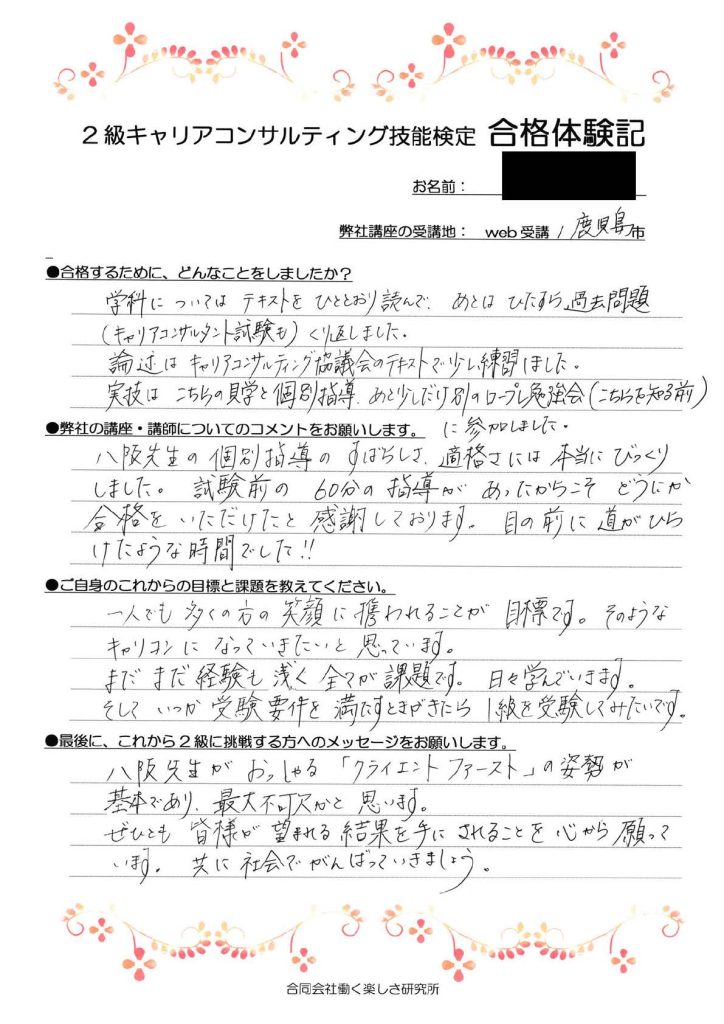 2級キャリアコンサルティング技能検定 合格体験記
お名前：
弊社講座の受講地： web受講 / 鹿児島市
●合格するために、どんなことをしましたか？
学科については テキストを ひととおり読んで、あとは ひたすら 過去問題
(キャリアコンサルタント試験も) くり返しました。
論述は キャリアコンサルティング協議会のテキストで少し練習しました。
実技は こちらの見学と個別指導、あと少しだけ別のロープレ勉強会(こちらを知る前)
に参加しました。
●弊社の講座・講師についてのコメントをお願いします。
八阪先生の 個別指導の すばらしさ、適格さには 本当に びっくり
しました。 試験前の 60分の 指導が あったからこそ どうにか
合格を いただけたと 感謝しております。 目の前に 道がひら
けたような時間でした!!
●ご自身のこれからの目標と課題を教えてください。
一人でも 多くの方の 笑顔に 携われることが 目標です。そのような
キャリコンに なっていきたいと 思っています。
まだまだ 経験も 浅く 全てが課題です。 日々学んでいきます。
そして いつか 受験要件を 満たすときがきたら 1級を受験してみたいです。
●最後に、これから2級に挑戦する方へのメッセージをお願いします。
八阪先生が おっしゃる 「クライエント ファースト」の 姿勢が
基本であり、最大不可欠かと 思います。
ぜひとも 皆様が 望まれる 結果を手に されることを 心から 願って
います。 共に 社会で がんばっていきましょう。
合同会社働く楽しさ研究所